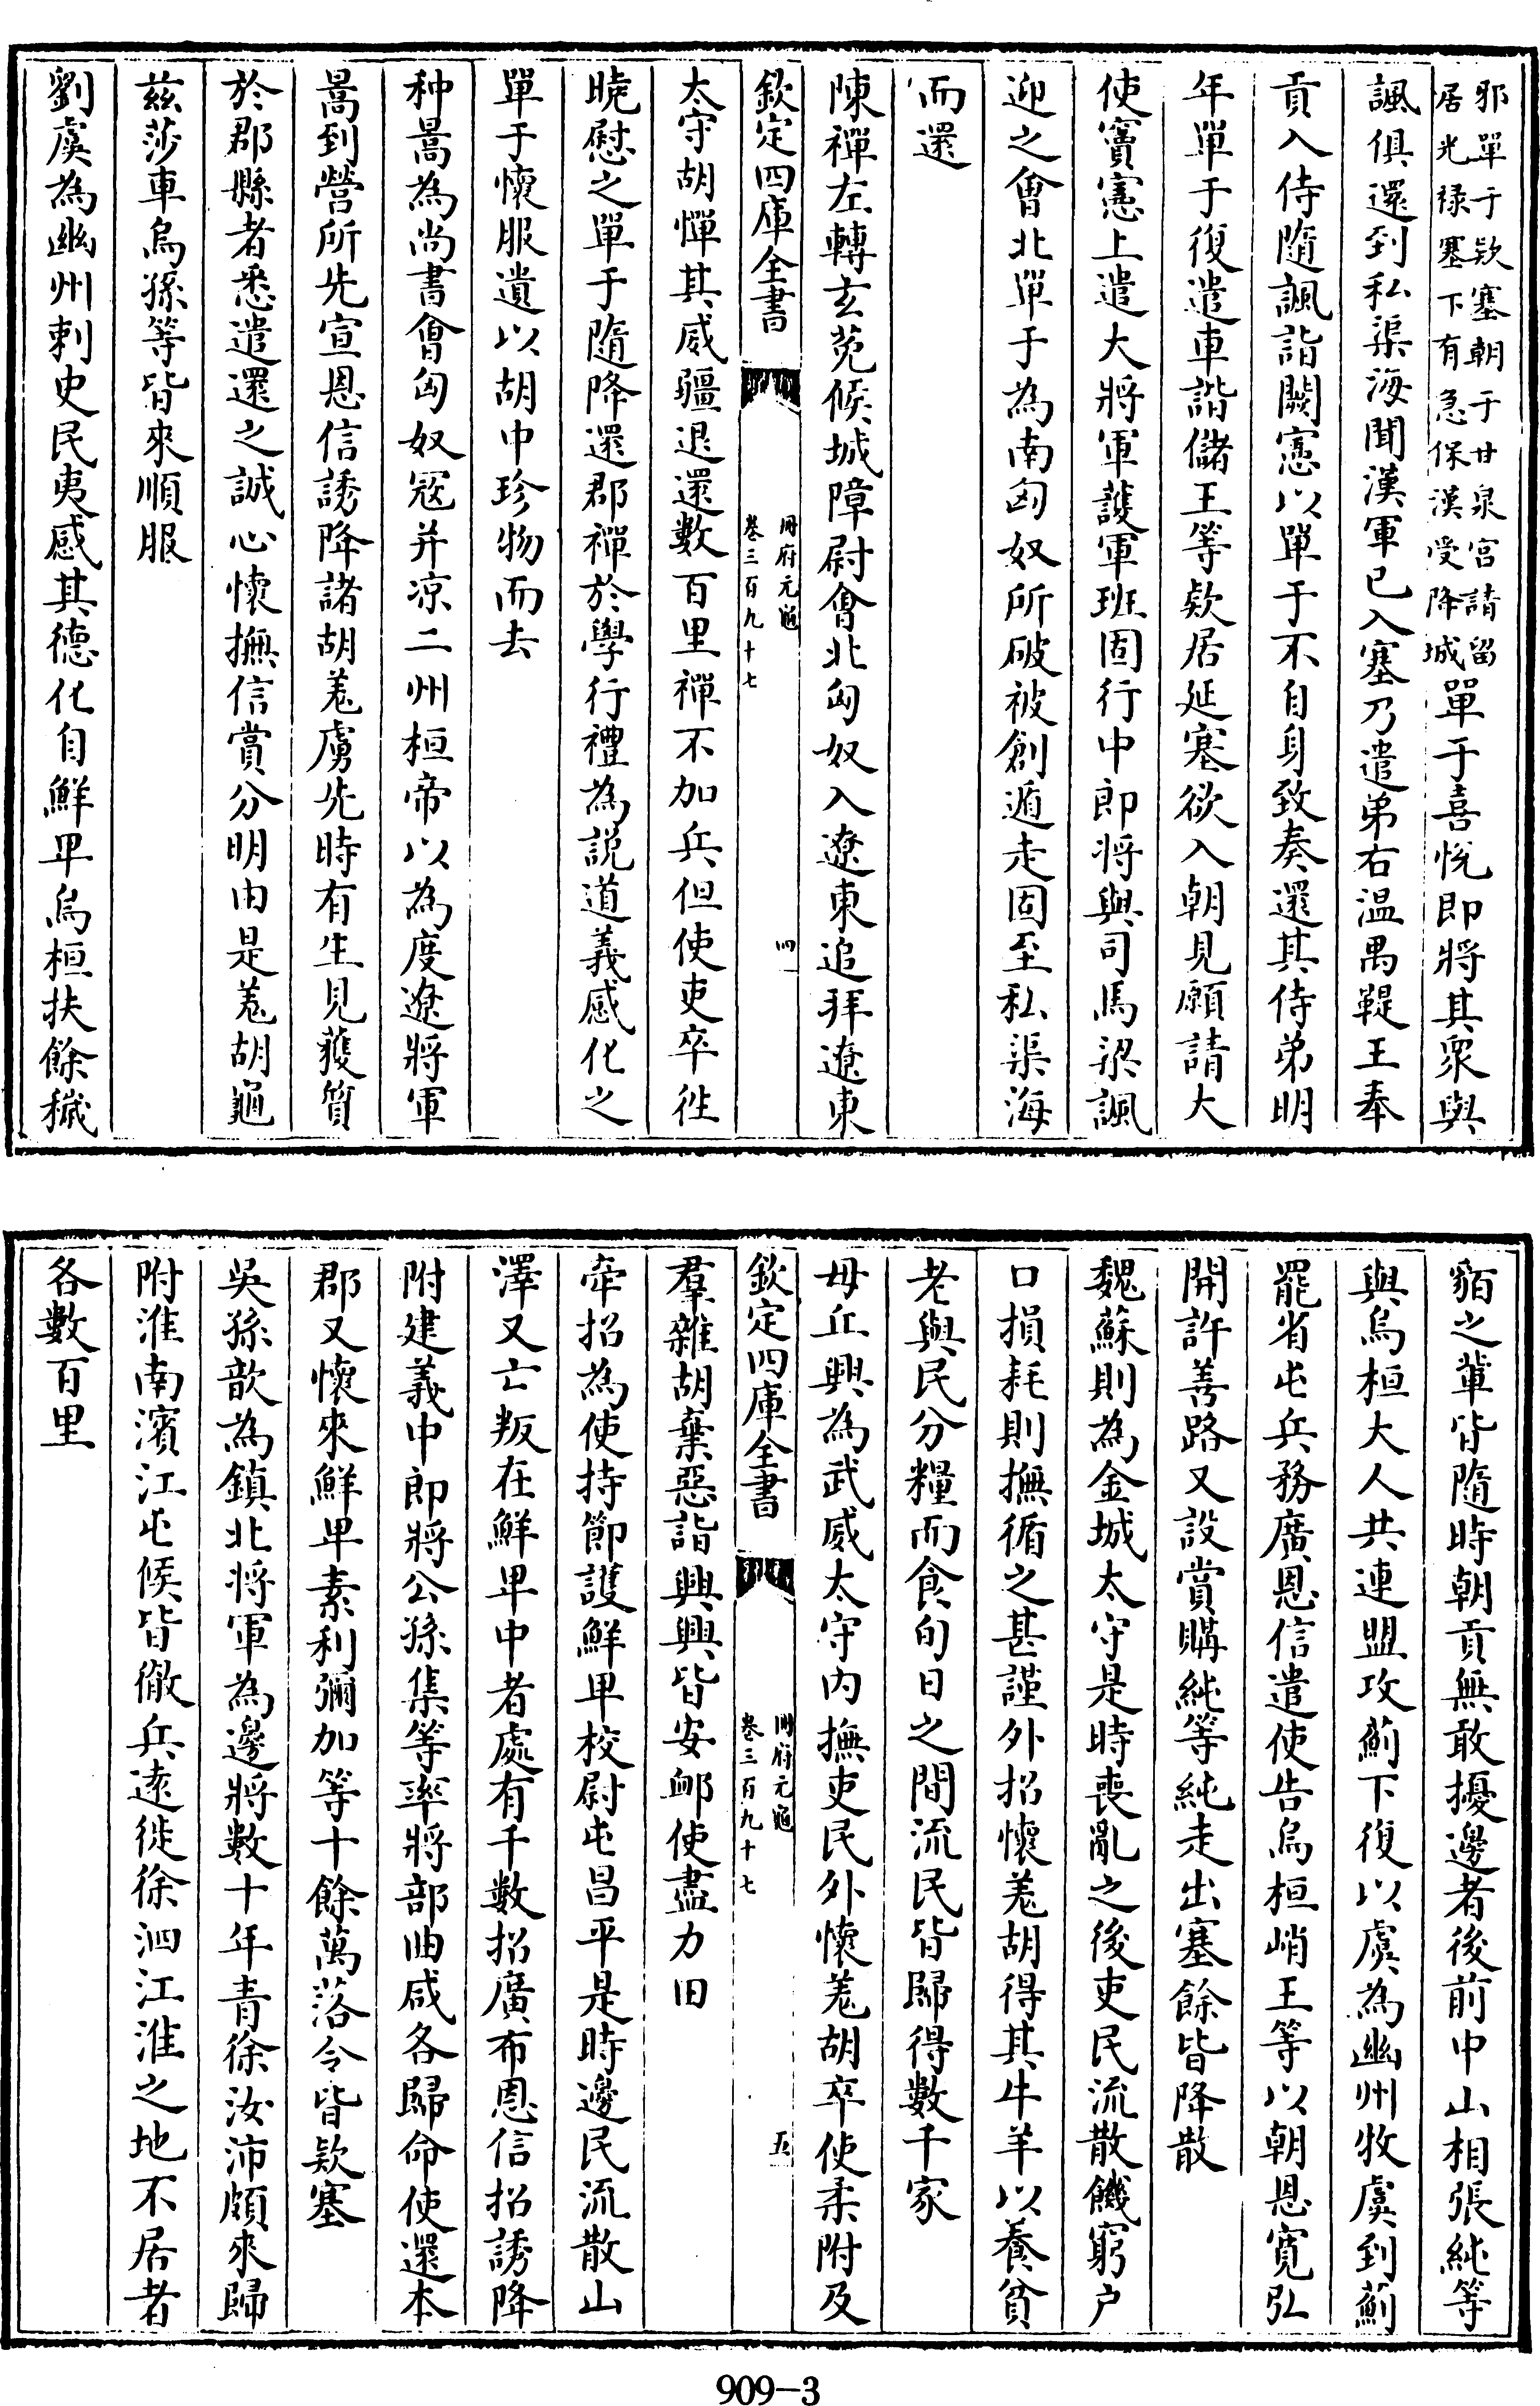 邪單于欵塞朝于甘泉宮請留
居光禄塞下有急保漢受降城單于喜悅即將其衆與
諷俱還到私渠海聞漢軍已入塞乃遣弟右温禺鞮王奉
貢入侍隨諷詣闕憲以單于不自身致奏還其侍弟明
年單于復遣車諧儲王等欵居延塞欲入朝見願請大
使竇憲上遣大將軍護軍班固行中郎將與司馬梁諷
迎之會北單于為南匈奴所破被創遁走固至私渠海
而還
陳禪左轉玄菟候城障尉會北匈奴入遼東追拜遼東
欽定四庫全書
冊府元龜
卷三百九十七
四
太守胡憚其威彊退還數百里禪不加兵但使吏卒徃
曉慰之單于隨降還郡禪於學行禮為説道義感化之
單于懷服遺以胡中珍物而去
种暠為尚書會匈奴宼并凉二州桓帝以為度遼將軍
暠到營所先宣恩信誘降諸胡羗虜先時有生見獲質
於郡縣者悉遣還之誠心懷撫信賞分明由是羗胡龜
兹莎車烏孫等皆來順服
劉虞為幽州刺史民夷感其德化自鮮卑烏桓扶餘穢
貊之輩皆隨時朝貢無敢擾邊者後前中山相張純等
與烏桓大人共連盟攻薊下復以虞為幽州牧虞到薊
罷省屯兵務廣恩信遣使告烏桓峭王等以朝恩寛弘
開許善路又設賞購純等純走出塞餘皆降散
魏蘇則為金城太守是時喪亂之後吏民流散饑窮户
口損耗則撫循之甚謹外招懷羗胡得其牛羊以養貧
老與民分糧而食旬日之間流民皆歸得數千家
毋丘興為武威太守内撫吏民外懷羗胡卒使柔附及
欽定四庫全書
冊府元龜
卷三百九十七
五
羣雜胡棄惡詣興興皆安䘏使盡力田
牽招為使持節護鮮卑校尉屯昌平是時邊民流散山
澤又亡叛在鮮卑中者處有千數招廣布恩信招誘降
附建義中郎將公孫集等率將部曲咸各歸命使還本
郡又懷來鮮卑素利彌加等十餘萬落令皆欵塞
吳孫歆為鎮北將軍為邊將數十年青徐汝沛頗來歸
附淮南濱江屯候皆徹兵遠徙徐泗江淮之地不居者
各數百里
909-3